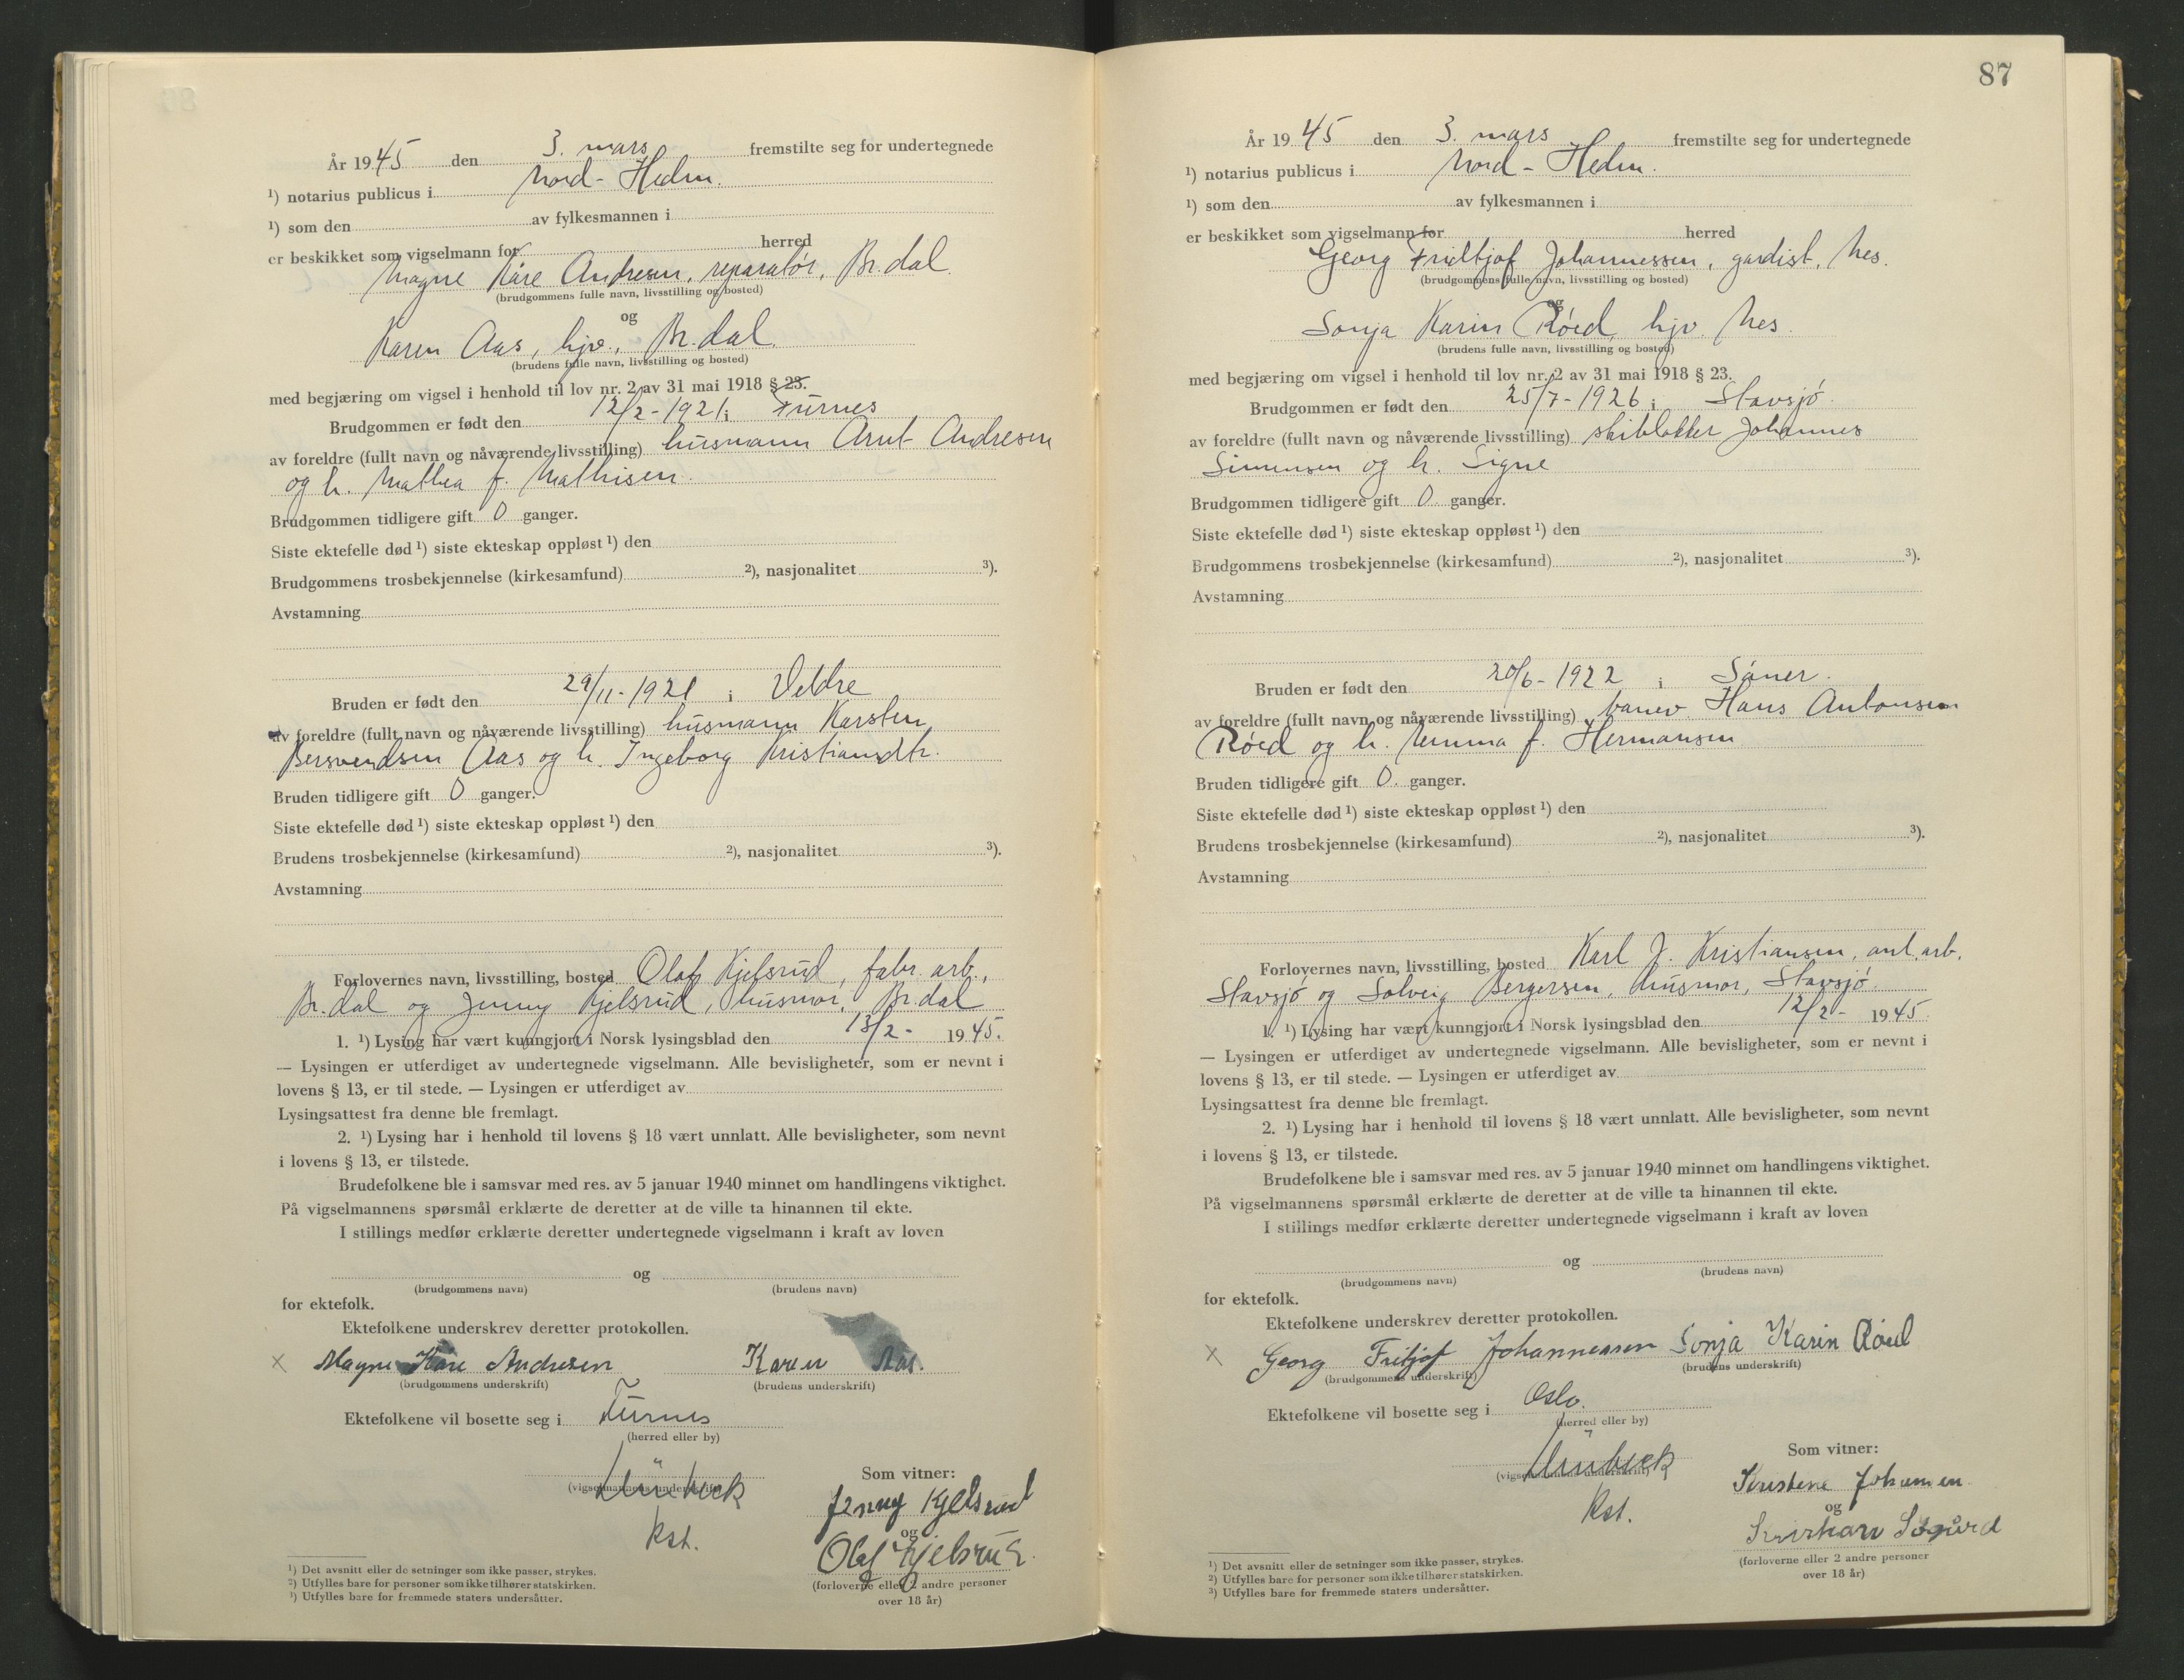 År 1945 den 3. mars fremstilte seg for undertegnede
¹) notarius publicus i Nord-Hedm.
¹) som den av fylkesmannen i
er beskikket som vigselmann for herred
Magne Kåre Andresen, reparatør, Br.dal.
(brudgommens fulle navn, livsstilling og bosted)
og
Karen Aas, hjv., Br.dal
(brudens fulle navn, livsstilling og bosted)
med begjæring om vigsel i henhold til lov nr. 2 av 31 mai 1918 § 23.
Brudgommen er født den 12/2-1921 i Furnes
av foreldre (fullt navn og nåværende livsstilling) husmann Arnt Andresen
og h. Mathea f. Mathisen.
Brudgommen tidligere gift 0 ganger.
Siste ektefelle død ¹) siste ekteskap oppløst ¹) den
Brudgommens trosbekjennelse (kirkesamfund) ²), nasjonalitet ³).
Avstamning
Bruden er født den 29/11-1921 i Veldre
av foreldre (fullt navn og nåværende livsstilling) husmann Karsten
Bersvendsen Aas og h. Ingeborg Kristiansdtr.
Bruden tidligere gift 0 ganger.
Siste ektefelle død ¹) siste ekteskap oppløst ¹) den
Brudens trosbekjennelse (kirkesamfund) ²), nasjonalitet ³).
Avstamning
Forlovernes navn, livsstilling, bosted Olaf Kjelsrud, fabr. arb.,
Br.dal og Jenny Kjelsrud, husmor, Br.dal
1. ¹) Lysing har vært kunngjort i Norsk lysingsblad den 13/2- 1945.
— Lysingen er utferdiget av undertegnede vigselmann. Alle bevisligheter, som er nevnt i
lovens § 13, er til stede. — Lysingen er utferdiget av
Lysingsattest fra denne ble fremlagt.
2. ¹) Lysing har i henhold til lovens § 18 vært unnlatt. Alle bevisligheter, som nevnt
i lovens § 13, er tilstede.
Brudefolkene ble i samsvar med res. av 5 januar 1940 minnet om handlingens viktighet.
På vigselmannens spørsmål erklærte de deretter at de ville ta hinannen til ekte.
I stillings medfør erklærte deretter undertegnede vigselmann i kraft av loven
og
(brudgommens navn) (brudens navn)
for ektefolk.
Ektefolkene underskrev deretter protokollen.
x Magne Kåre Andresen Karen Aas.
(brudgommens underskrift) (brudens underskrift)
Ektefolkene vil bosette seg i Furnes
(herred eller by)
Som vitner:
(vigselmannens underskrift)
Jenny Kjelsrud
og
Olaf Kjelsrud
(forloverne eller 2 andre personer
over 18 år)
¹) Det avsnitt eller de setninger som ikke passer, strykes.
²) Utfylles bare for personer som ikke tilhører statskirken.
³) Utfylles bare for fremmede staters undersåtter.
87
År 1945 den 3. mars fremstilte seg for undertegnede
¹) notarius publicus i Nord-Hedm.
¹) som den av fylkesmannen i
er beskikket som vigselmann for herred
Georg Fridtjof Johannessen, gardist, Nes.
(brudgommens fulle navn, livsstilling og bosted)
og
Sonja Karin Røed, hjv. Nes.
(brudens fulle navn, livsstilling og bosted)
med begjæring om vigsel i henhold til lov nr. 2 av 31 mai 1918 § 23.
Brudgommen er født den 25/7-1926 i Stavsjø.
av foreldre (fullt navn og nåværende livsstilling) Johannes
Simensen og h. Signe
Brudgommen tidligere gift 0 ganger.
Siste ektefelle død ¹) siste ekteskap oppløst ¹) den
Brudgommens trosbekjennelse (kirkesamfund) ²), nasjonalitet ³).
Avstamning
Bruden er født den 20/6-1922 i Såner.
av foreldre (fullt navn og nåværende livsstilling) banev. Hans Antonsen
Røed og h. f. Hermansen
Bruden tidligere gift 0. ganger.
Siste ektefelle død ¹) siste ekteskap oppløst ¹) den
Brudens trosbekjennelse (kirkesamfund) ²), nasjonalitet ³).
Avstamning
Forlovernes navn, livsstilling, bosted Karl J. Kristiansen, anl. arb.
Stavsjø og Solveig Bergersen, husmor, Stavsjø.
1. ¹) Lysing har vært kunngjort i Norsk lysingsblad den 12/2- 1945.
— Lysingen er utferdiget av undertegnede vigselmann. Alle bevisligheter, som er nevnt i
lovens § 13, er til stede. — Lysingen er utferdiget av
Lysingsattest fra denne ble fremlagt.
2. ¹) Lysing har i henhold til lovens § 18 vært unnlatt. Alle bevisligheter, som nevnt
i lovens § 13, er tilstede.
Brudefolkene ble i samsvar med res. av 5 januar 1940 minnet om handlingens viktighet.
På vigselmannens spørsmål erklærte de deretter at de ville ta hinannen til ekte.
I stillings medfør erklærte deretter undertegnede vigselmann i kraft av loven
og
(brudgommens navn) (brudens navn)
for ektefolk.
Ektefolkene underskrev deretter protokollen.
x Georg Fritjof Johannessen Sonja Karin Røed
(brudgommens underskrift) (brudens underskrift)
Ektefolkene vil bosette seg i Oslo.
(herred eller by)
Som vitner:
(vigselmannens underskrift)
og
(forloverne eller 2 andre personer
over 18 år)
¹) Det avsnitt eller de setninger som ikke passer, strykes.
²) Utfylles bare for personer som ikke tilhører statskirken.
³) Utfylles bare for fremmede staters undersåtter.